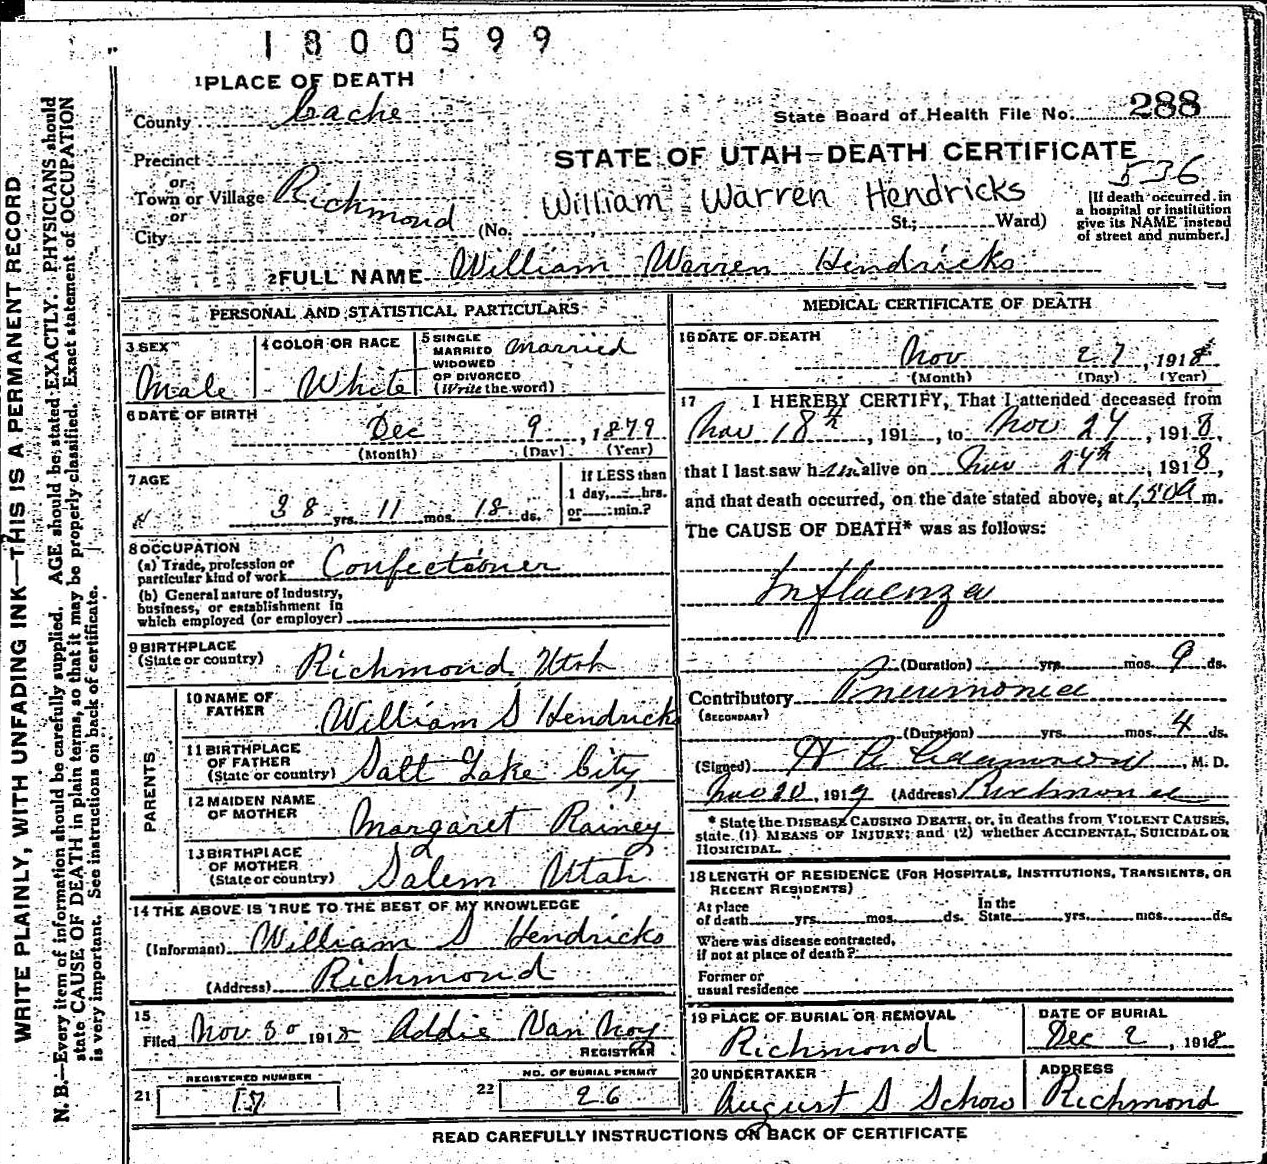 1800599
1 PLACE OF DEATH
County Cache
State Board of Health File No. 288
Precinct
or
Town or Village Richmond
or
City
STATE OF UTAH—DEATH CERTIFICATE
536
William Warren Hendricks
(No. St.; Ward)
[If death occurred in
a hospital or institution
give its NAME instead
of street and number.]
2 FULL NAME William Warren Hendricks
PERSONAL AND STATISTICAL PARTICULARS
3 SEX
Male
4 COLOR OR RACE
White
5 SINGLE
MARRIED
WIDOWED
OR DIVORCED
(Write the word)
Married
6 DATE OF BIRTH
Dec 9, 1879
(Month) (Day) (Year)
7 AGE
38 yrs. 11 mos. 18 ds.
If LESS than
1 day, hrs.
or min.?
8 OCCUPATION
(a) Trade, profession or
particular kind of work Confectioner
(b) General nature of Industry,
business, or establishment in
which employed (or employer)
9 BIRTHPLACE
(State or country) Richmond Utah
PARENTS
10 NAME OF
FATHER William S Hendricks
11 BIRTHPLACE
OF FATHER
(State or country) Salt Lake City
12 MAIDEN NAME
OF MOTHER Margaret Rainey
13 BIRTHPLACE
OF MOTHER
(State or country) Salem Utah
14 THE ABOVE IS TRUE TO THE BEST OF MY KNOWLEDGE
(Informant) William S Hendricks
(Address) Richmond
15
Filed Nov 30 1918 Addie Van Noy
REGISTRAR
REGISTERED NUMBER
21 17
NO. OF BURIAL PERMIT
22 26
MEDICAL CERTIFICATE OF DEATH
16 DATE OF DEATH
Nov 27, 1918
(Month) (Day) (Year)
17 I HEREBY CERTIFY, That I attended deceased from
Nov 18th, 191 , to Nov 24, 1918,
that I last saw him alive on Nov 24th, 1918,
and that death occurred, on the date stated above, at 1,50a m.
The CAUSE OF DEATH* was as follows:
Influenza
(Duration) yrs. mos. 9 ds.
Contributory Pneumonia
(SECONDARY)
(Duration) yrs. mos. 4 ds.
(Signed) , M. D.
Nov 20, 1919 (Address) Richmond
* State the DISEASE CAUSING DEATH, or, in deaths from VIOLENT CAUSES,
state (1) MEANS OF INJURY; and (2) whether ACCIDENTAL, SUICIDAL OR
HOMICIDAL.
18 LENGTH OF RESIDENCE (FOR HOSPITALS, INSTITUTIONS, TRANSIENTS, OR
RECENT RESIDENTS)
At place
of death yrs. mos. ds.
In the
State yrs. mos. ds.
Where was disease contracted,
if not at place of death?
Former or
usual residence
19 PLACE OF BURIAL OR REMOVAL
Richmond
DATE OF BURIAL
Dec 2, 1918
20 UNDERTAKER
August S Schow
ADDRESS
Richmond
READ CAREFULLY INSTRUCTIONS ON BACK OF CERTIFICATE
WRITE PLAINLY, WITH UNFADING INK—THIS IS A PERMANENT RECORD
N. B.—Every item of information should be carefully supplied. AGE should be stated EXACTLY. PHYSICIANS should
state CAUSE OF DEATH in plain terms, so that it may be properly classified. Exact statement of OCCUPATION
is very important. See instructions on back of certificate.